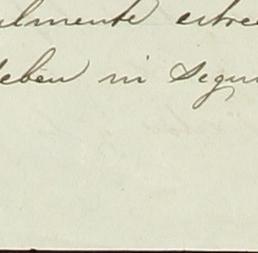 ulmente estrec
deben ni segui